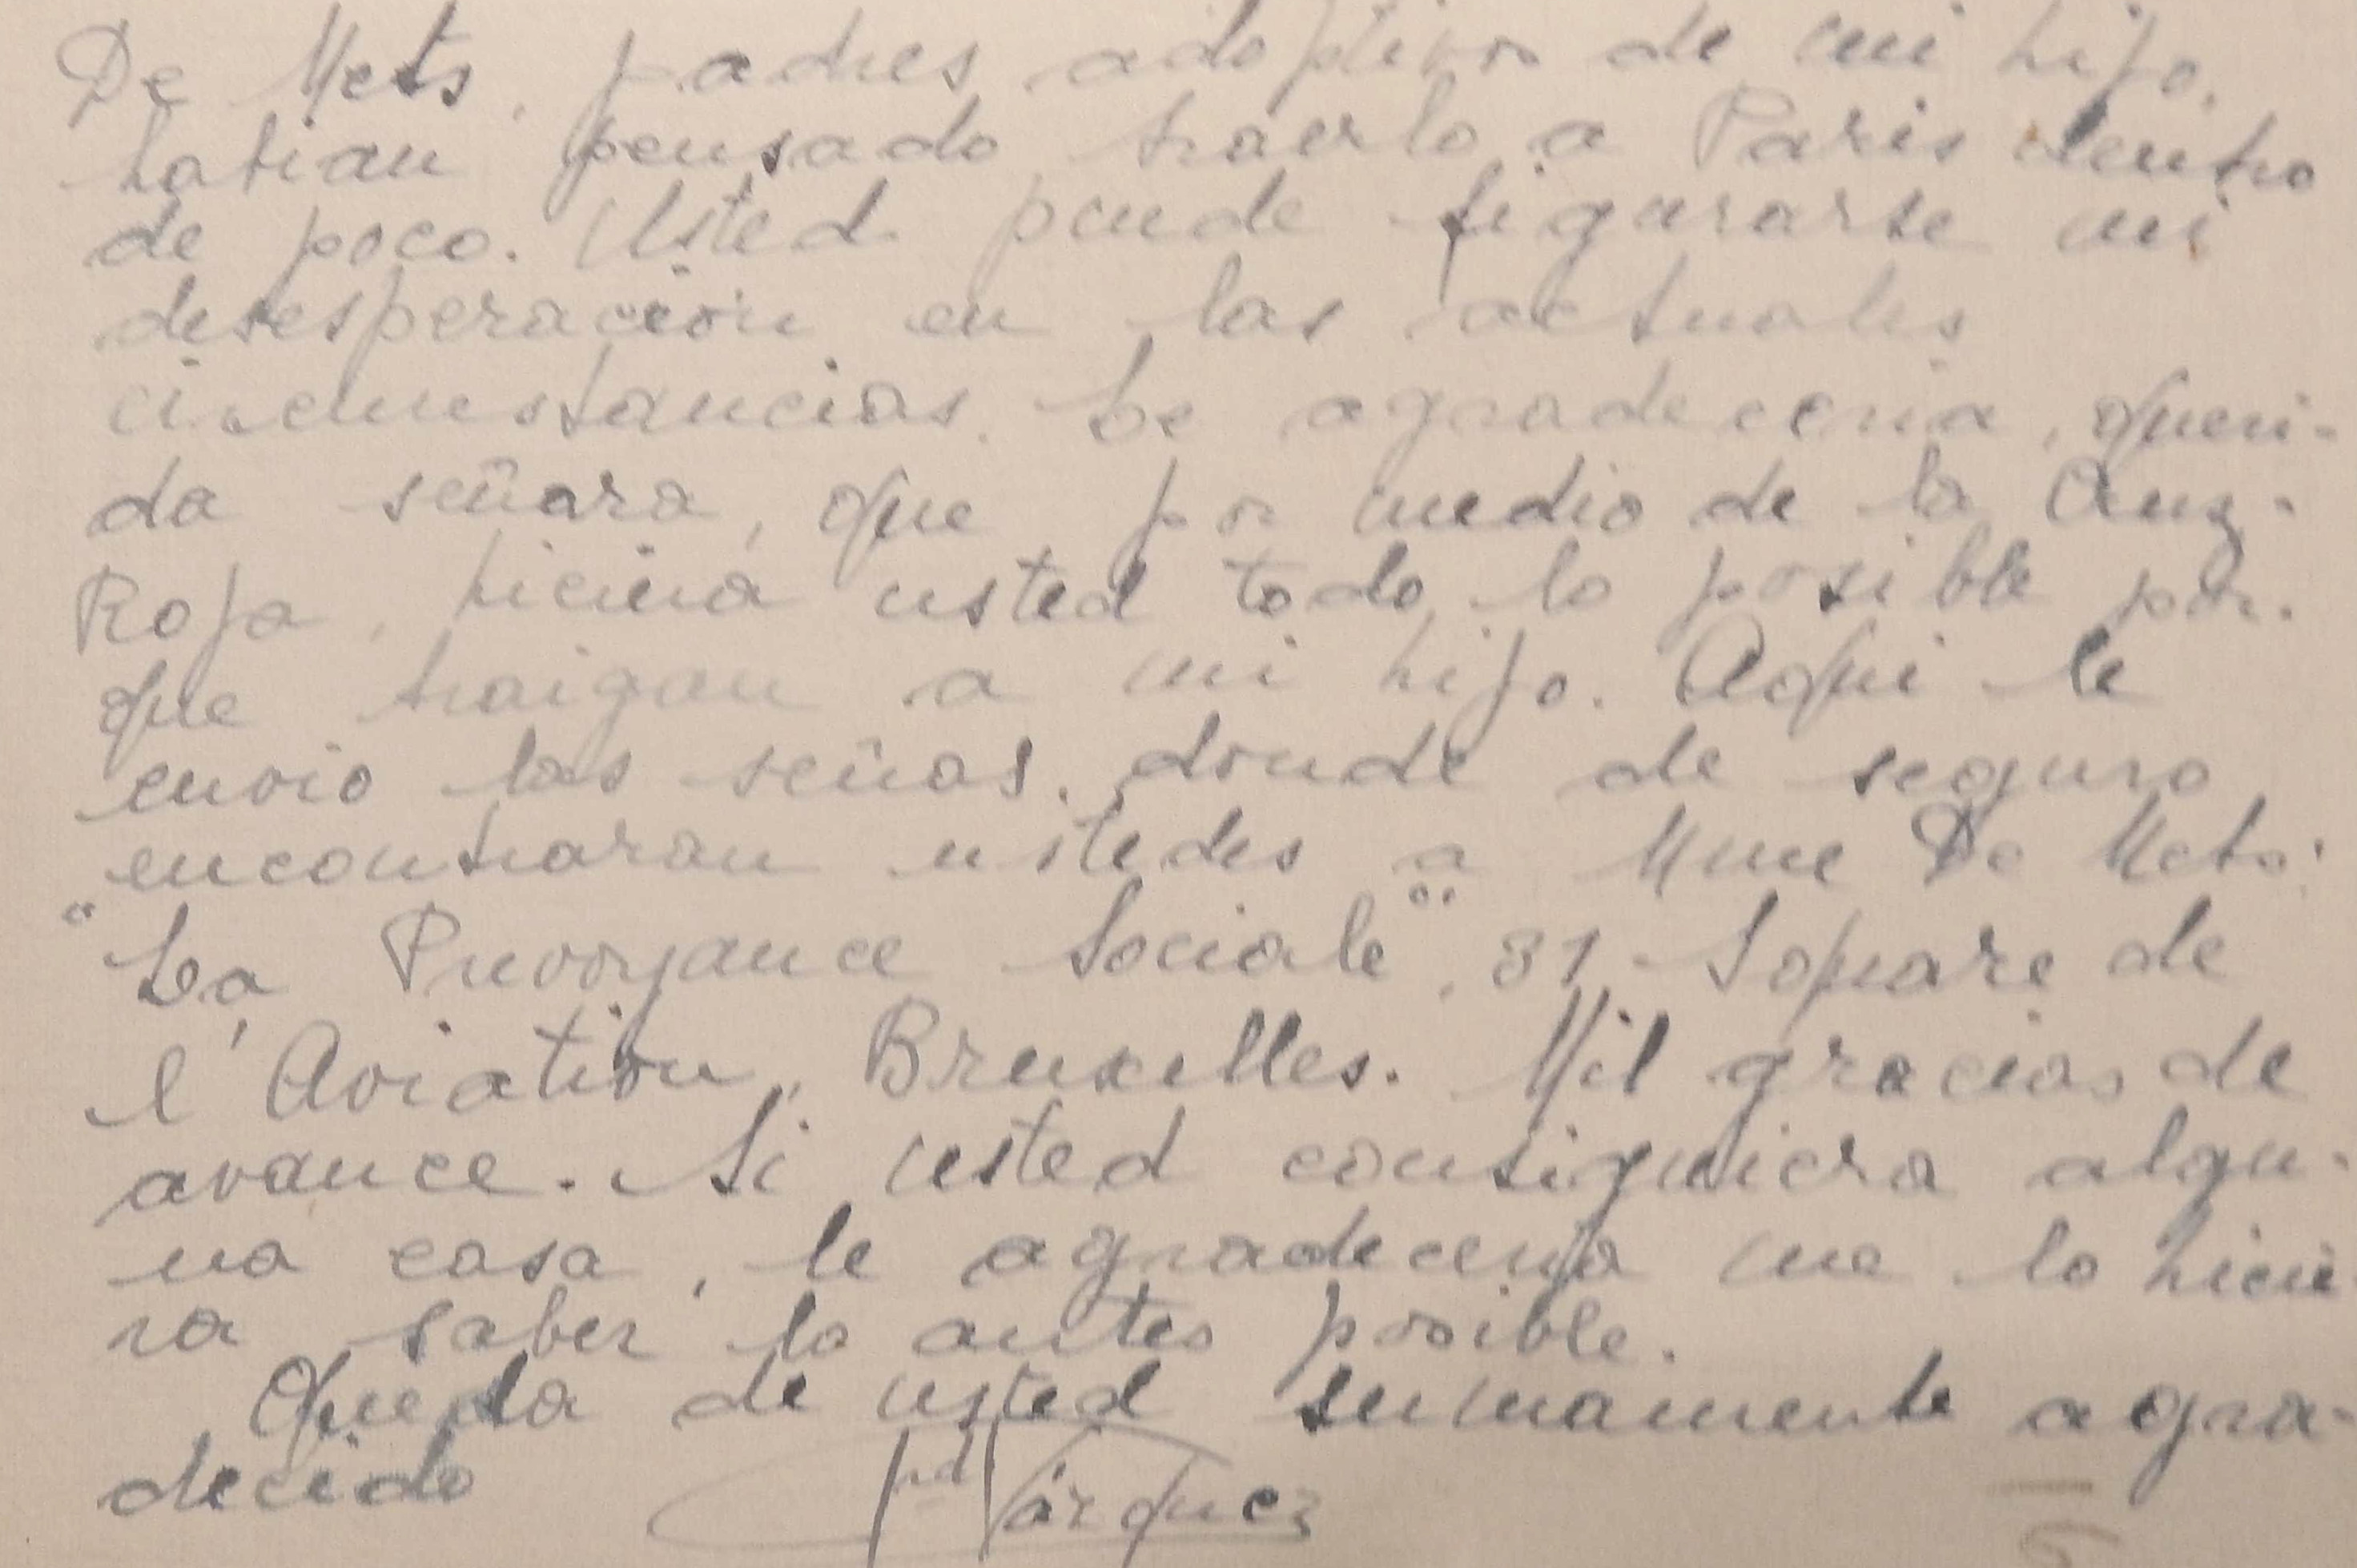 De Mets, padres adoptivos de mi hijo,
habian pensado traerlo a Paris dentro
de poco. Usted puede figurarse mi
desesperación en las actuales
circumstancias. Le agradeceria, queri-
da señora, que por medio de la Cruz-
Roja, hiciera usted todo lo posible por-
que traigan a mi hijo. Aqui le
envio las señas, donde de seguro
encontraran ustedes a Mme De Mets:
"La Prevoyance Sociale", 31 - Square de
l'Aviation, Bruxelles. Mil gracias de
avance. Si usted consiguiera algu-
na casa, le agradeceria me lo hicie-
ra saber lo antes posible.
Queda de usted sumamente agra-
decido
Vázquez